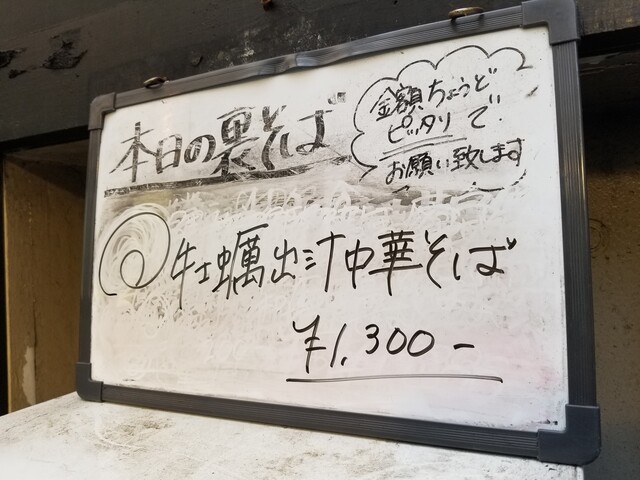 本日の裏そば
金額ちょうど
ピッタリで
お願い致します
牡蠣出汁中華そば
¥1,300-